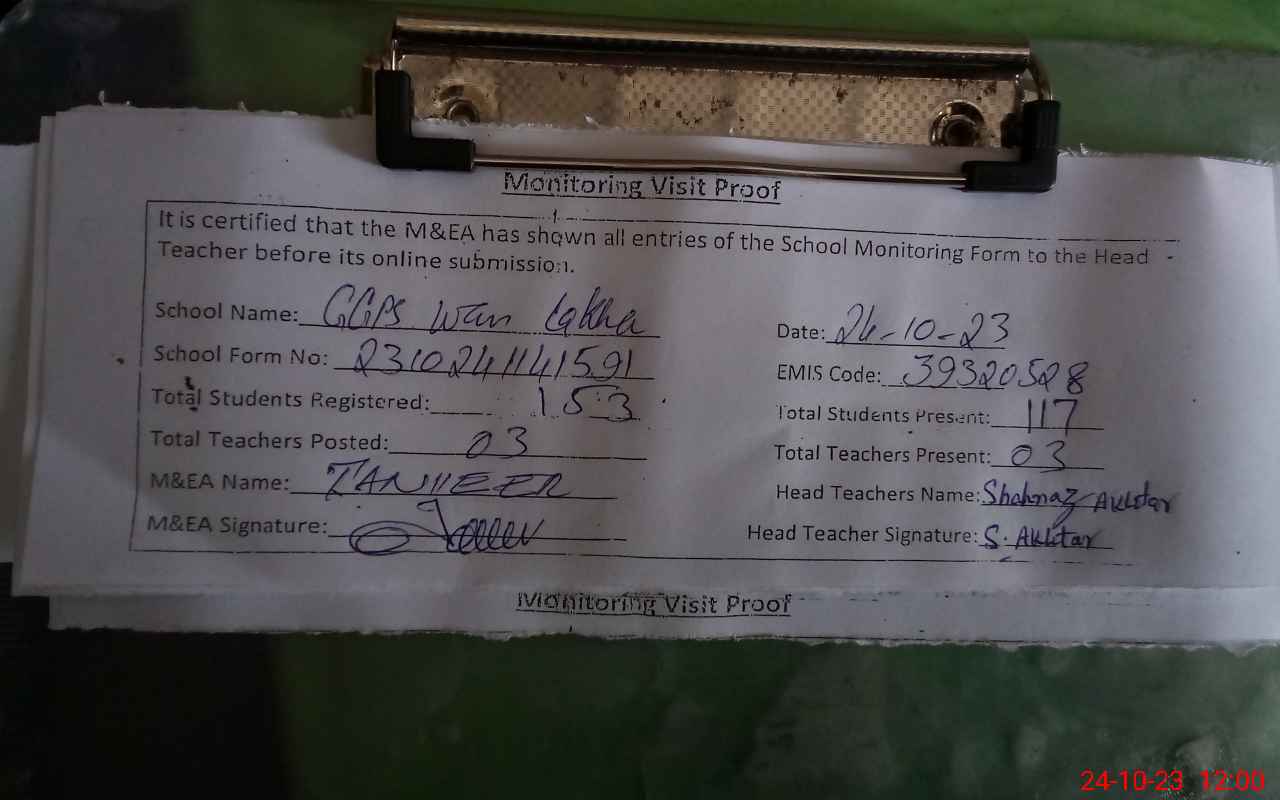 Monitoring Visit Proof
It is certified that the M&EA has shown all entries of the School Monitoring Form to the Head
Teacher before its online submission.
School Name: GGPS Wan Lakha Date: 24-10-23
School Form No: 2310241141591 EMIS Code: 39320528
Total Students Registered: 153 Total Students Present: 117
Total Teachers Posted: 03 Total Teachers Present: 03
M&EA Name: TANVEER Head Teachers Name: Shahnaz Akhtar
M&EA Signature: Head Teacher Signature: S. Akhtar
Monitoring Visit Proof
24-10-23 12:00